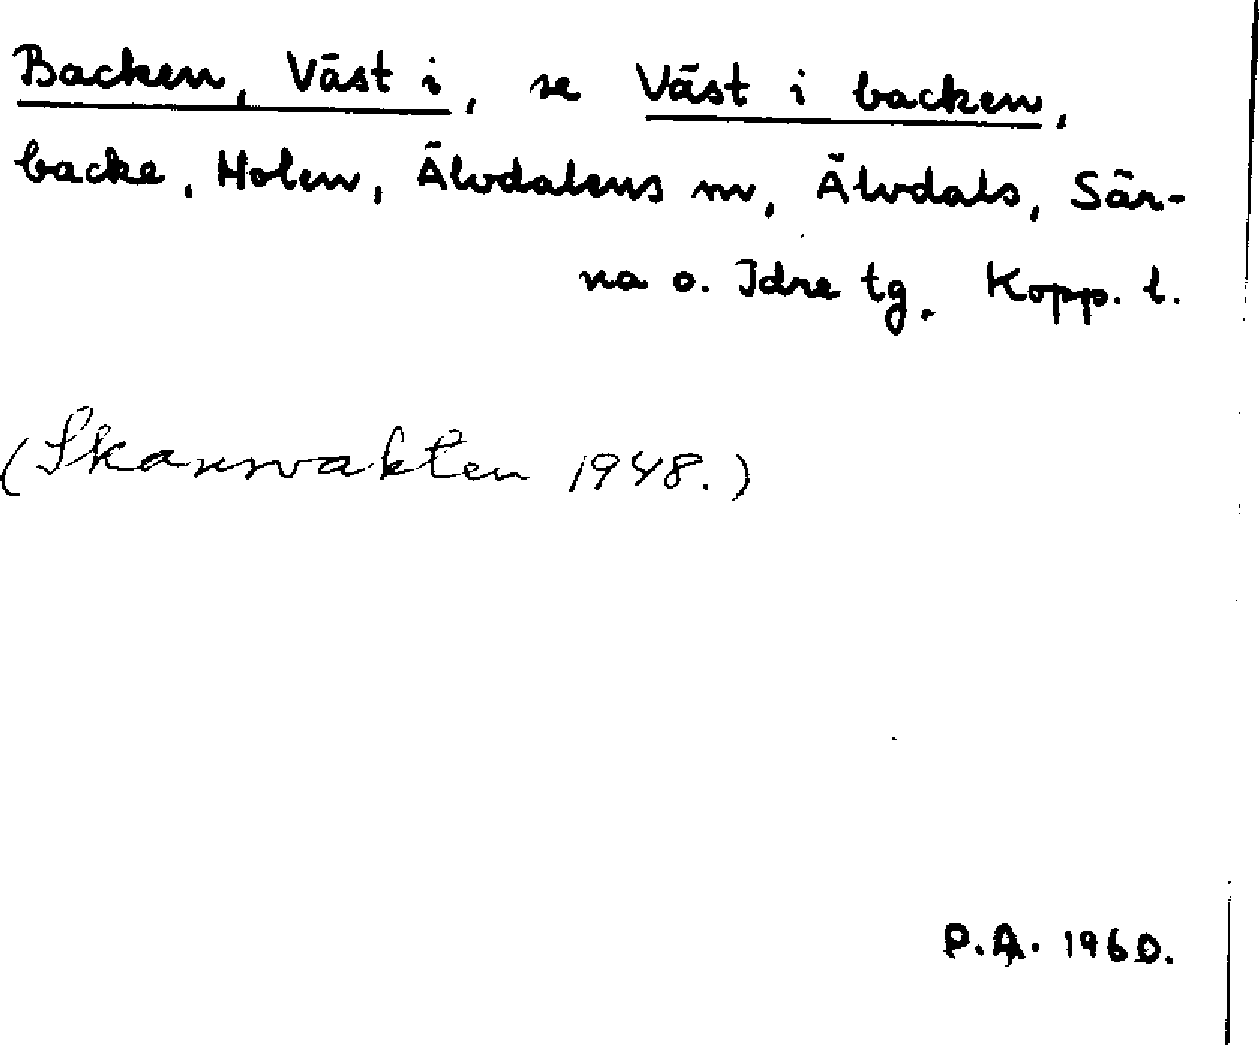 Backen, Väst i, se Väst i backen,
backe, Holen, Älvdalens sn, Älvdals, Sär-
na o. Idre tg. Kopp. l.
(Skansvakten 1948.)
P.A. 1960.